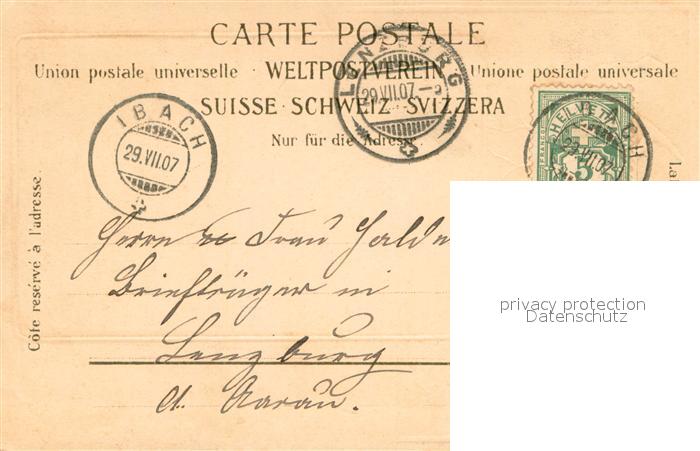 CARTE POSTALE
Union postale universelle · WELTPOSTVEREIN · Unione postale universale
SUISSE · SCHWEIZ · SVIZZERA
Nur für die Adresse.
LENZBURG
29.VII.07
IBACH
29.VII.07
HELVETIA
FRANCO
5
IBACH
29.VII.07
Côte réservé à l'adresse.
La
Herrn & Frau Halde
Briefträger in
Lenzburg
a. Aarau.
privacy protection
Datenschutz